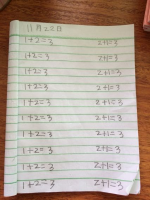 11月23日
1+2=3 2+1=3
1+2=3 2+1=3
1+2=3 2+1=3
1+2=3 2+1=3
1+2=3 2+1=3
1+2=3 2+1=3
1+2=3 2+1=3
1+2=3 2+1=3
1+2=3 2+1=3
1+2=3 2+1=3